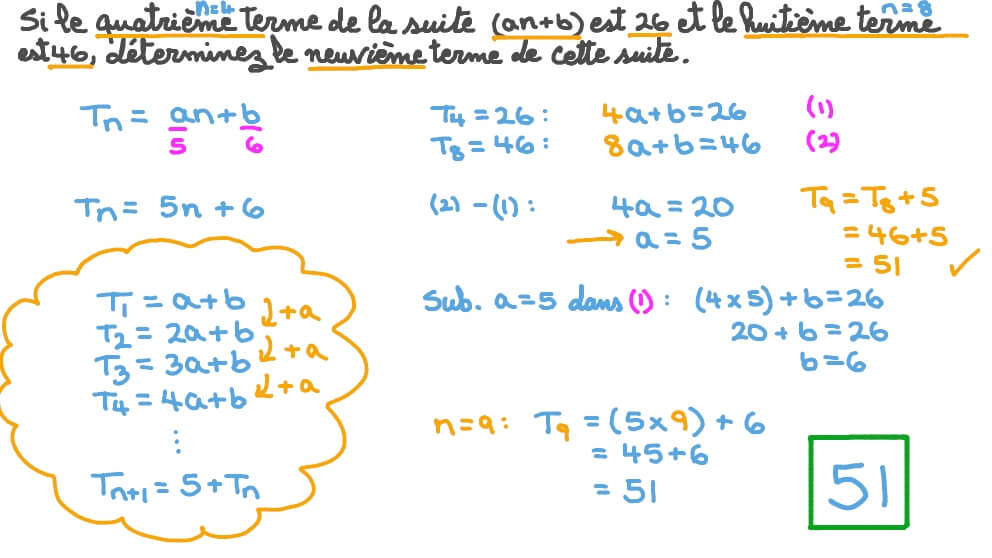 n=4
n=8
Si le quatrième terme de la suite (an+b) est 26 et le huitième terme
est 46, déterminez le neuvième terme de cette suite.
Tn = an+b
5 6
Tn = 5n + 6
T1 = a+b
T2 = 2a+b
T3 = 3a+b
T4 = 4a+b
+a
+a
+a
⋮
Tn+1 = 5+Tn
T4 = 26 : 4a+b=26 (1)
T8 = 46 : 8a+b=46 (2)
(2) - (1) : 4a = 20
→ a = 5
T9 = T8 + 5
= 46+5
= 51 ✓
Sub. a=5 dans (1) : (4×5)+b=26
20+b=26
b=6
n=9: T9 = (5×9) + 6
= 45+6
= 51
51